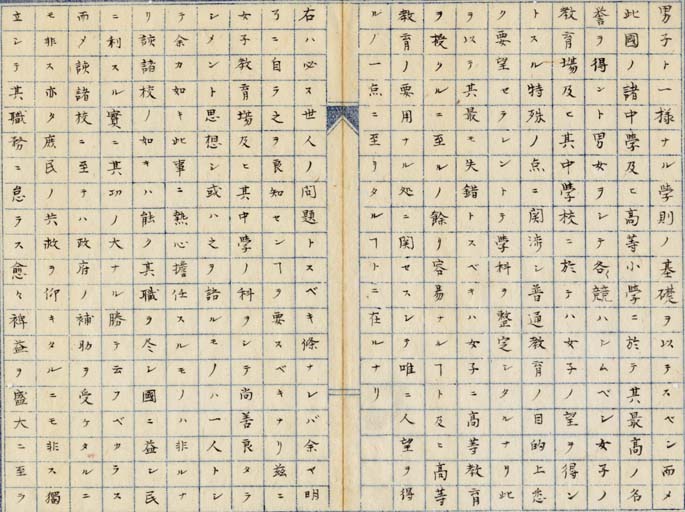 男子ト一様ナル學則ノ基礎ヲ以テスベシ而メ
此國ノ諸中學及ヒ高等小學ニ於テ其最高ノ名
誉ヲ得ント男女ヲシテ各競ハシムベシ女子ノ
教育場及ヒ其中學校ニ於テハ女子ノ望ヲ得ン
トスル特殊ノ点ニ関渉シ普通教育ノ目的上悉
ク要望セラレントテ學科ヲ整定シタルナリ此
ヲ以テ其最モ失錯トスベキハ女子ニ高等教育
ヲ授クルニ至ルノ餘リ容易ナルヿト及ニ高等
教育ノ要用ナル処ニ関セスシテ唯ニ人望ヲ得
ルノ一点ニ至リタルヿトニ在ルナリ
右ハ必ス世人ノ問題トスベキ條ナレバ余ヤ明
ラニ自ラ之ヲ良知センヿヲ要スベキナリ茲ニ
女子教育場及ヒ其中學ノ科ヲシテ尚善良タラ
シメント思想シ或ハ之ヲ諸ルモノハ一人トシ
テ余カ如キ此事ニ熱心擔任スルモノハ非ルナ
リ該諸校ノ如キハ能ク其職ヲ尽シ國ニ益シ民
ニ利スル實ニ其功ノ大ナル勝テ云フベカラス
而メ該諸校ニ至テハ政府ノ補助ヲ受ケタルニ
モ非ス亦タ庶民ノ共救ヲ仰キタルニモ非ス獨
立シテ其職務ニ怠ラス愈々裨益ヲ盛大ニ至ラ